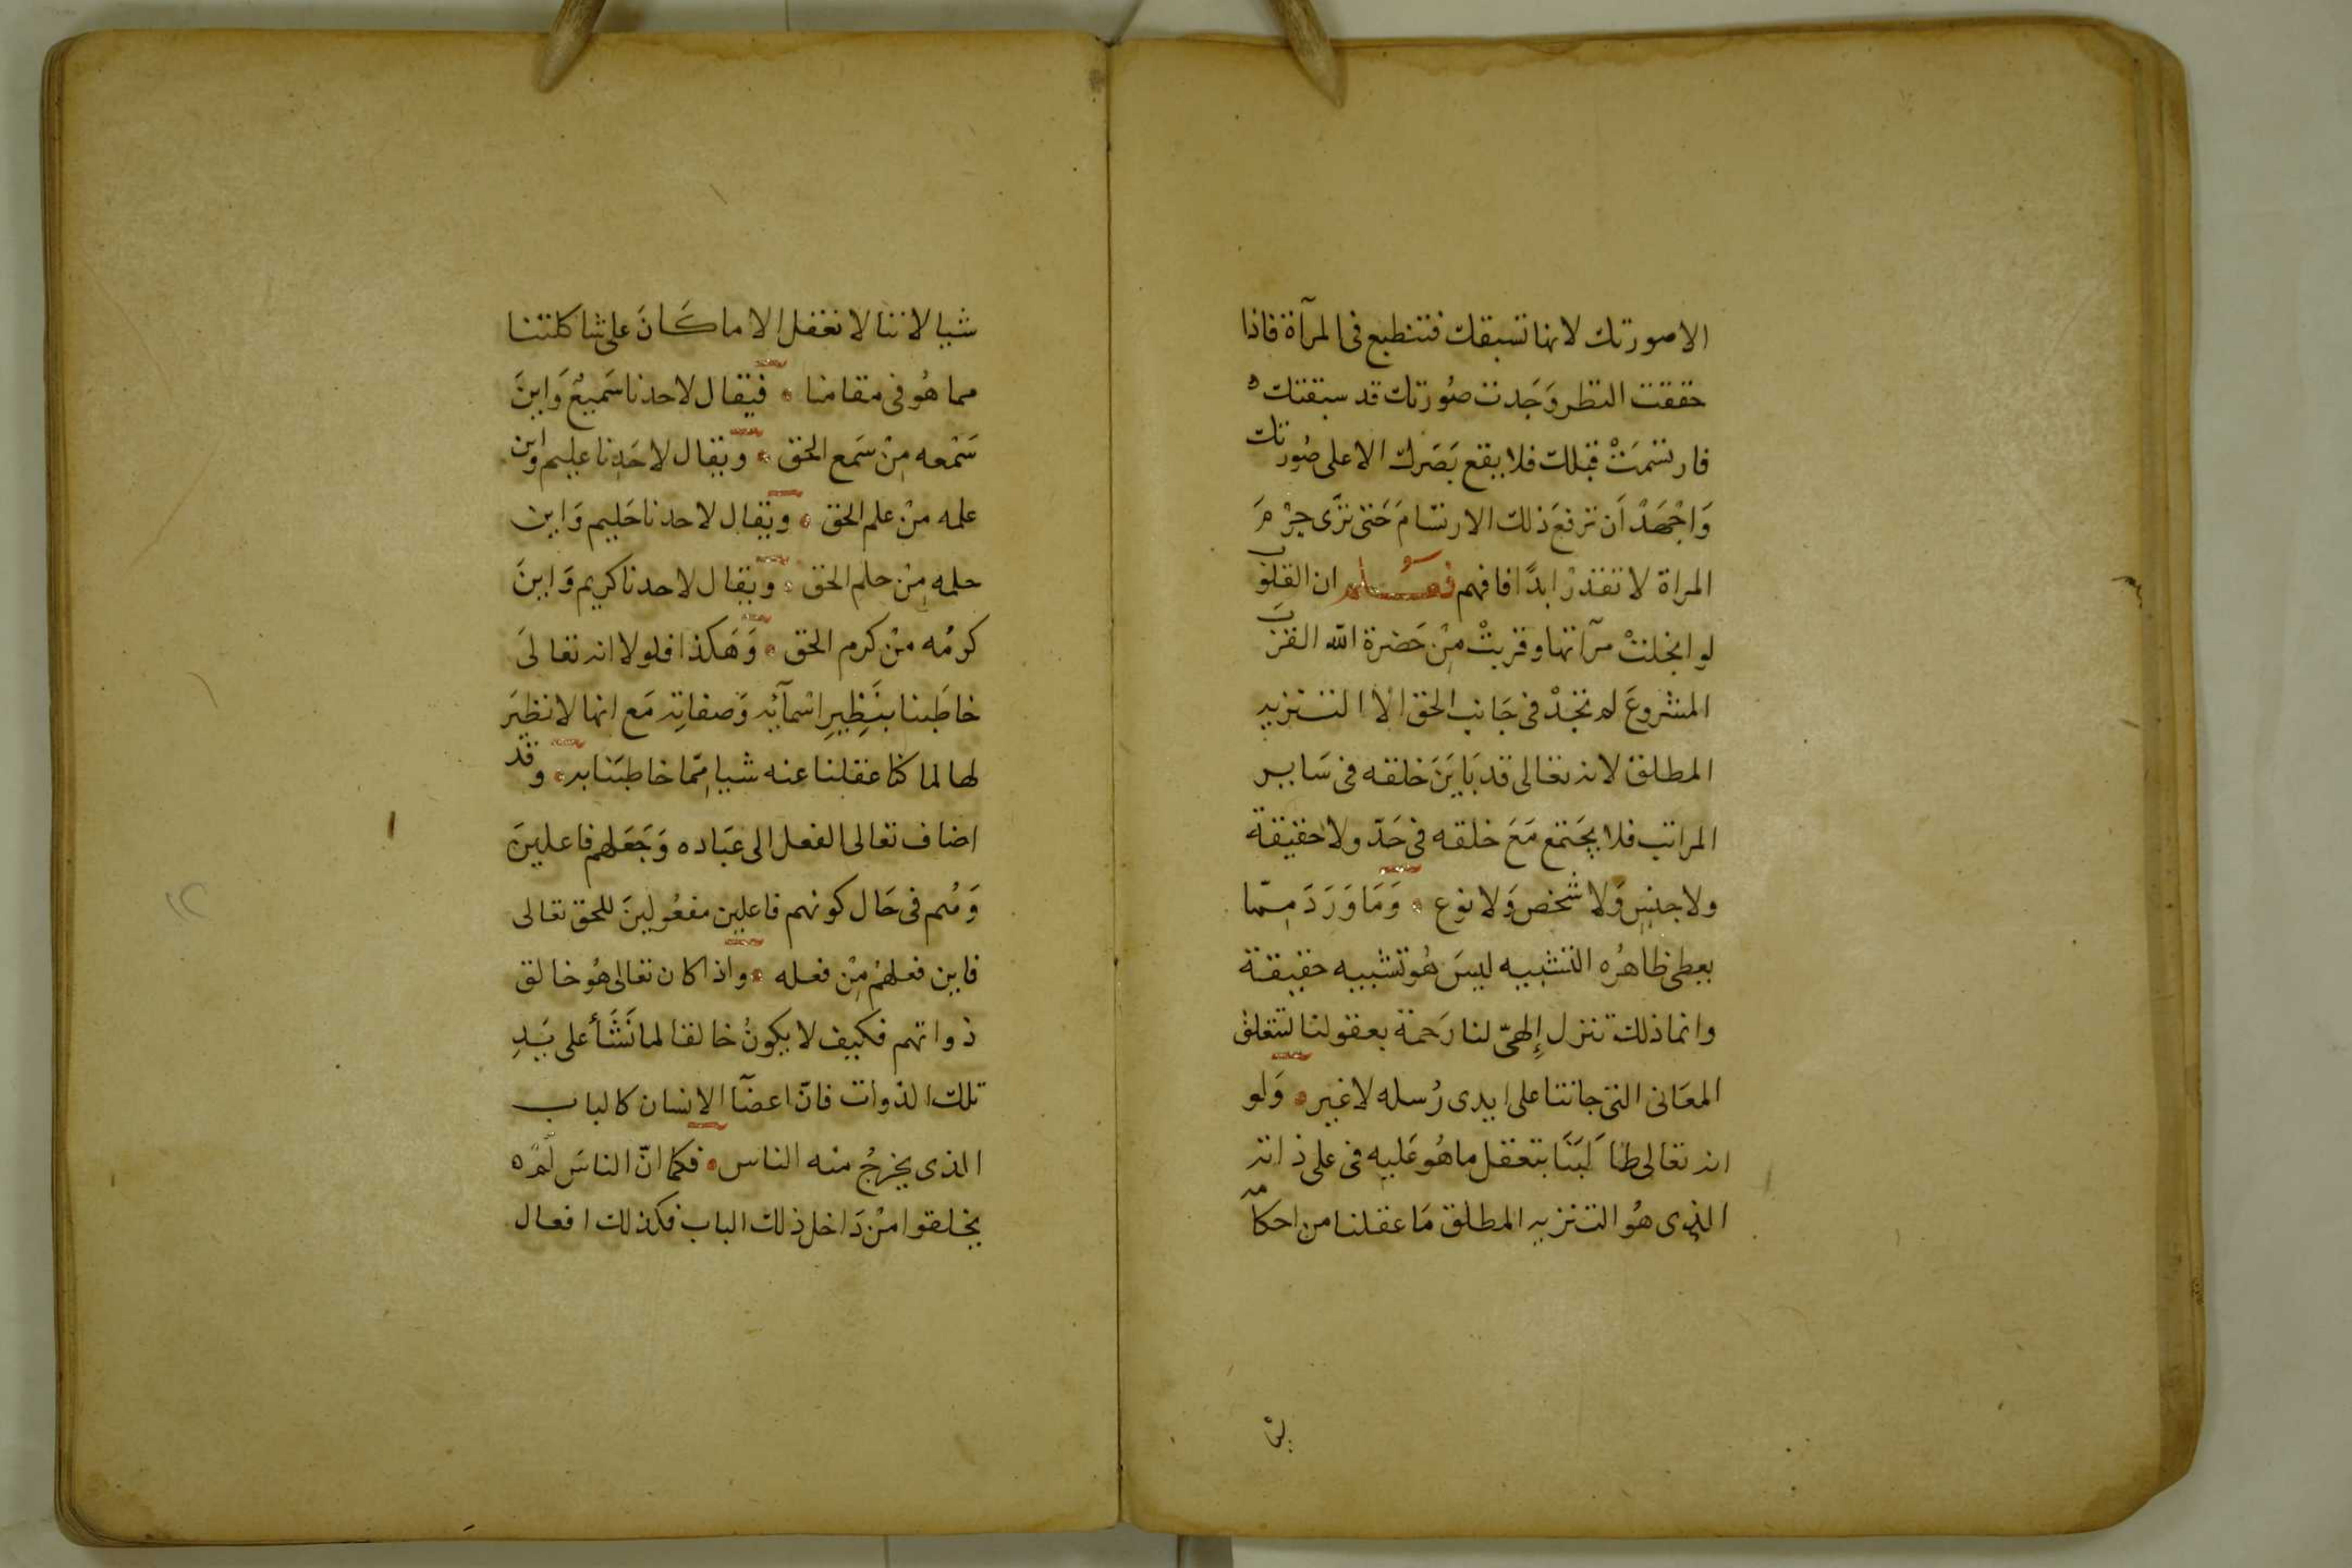 الا صورتك لانها تسبقك فتنطبع فى المرآة فاذا
حققت النظر وَجَدت صُورتك قد سبقتك
فارتسمَتْ قبلك فلا يقع بَصَرك الا على صُورتك
وَاجْهَدْ اَن ترفعَ ذلك الارتسَامَ حَتى ترَى جرْمَ
المراة لا تقدرْ ابدًا فافهم فصل ان القلوب
لو انجلتْ مرآتها وقربتْ مِنْ حَضرة الله القرْبَ
المشروعَ لم تجدْ فى جَانب الحق الا التنزيه
المطلق لانه تعالى قد بَايَنَ خلقه فى سَاير
المراتب فلا يجَتمع مَعَ خلقه فى حَدّ ولا حقيقة
ولا جنسٍ وَلا شخص وَلا نوع وَمَا وَرَدَ مِمّا
يعطى ظاهرُه التشبيه ليسَ هُو تشبيه حقيقة
وانما ذلك تنزل إلهىّ لنا رَحمة بعقولنا لتتعلق
المعَانى التى جاتنا على ايدى رُسله لا غير وَلو
انه تعالى طاَلبَنَا بتعقل ما هُو عَليه فى على ذاته
الذى هُو التنزيه المطلق مَا عقلنا من احكامه
شيا لاننا لا نعقل الا ما كَانَ على شاكلتنا
مما هُو فى مقامنا فيقال لاحدنا سَميعٌ وَاينَ
سَمْعه مِنْ سَمع الحق ويقال لاحَدِنا عليم واين
علمه منْ علم الحق ويقال لاحدنا حَليم وَاين
حلمه مِنْ حلم الحق ويقال لاحدنا كريم وَاينَ
كرمُه منْ كرم الحق وَهَكذا فلولا انه تعالىَ
خاطَبنا بنَظِيرِ اسْمآئه وَصفاتِه مَع انها لا نظيرَ
لها لما كنا عقلنا عنه شيا مِمّا خاطبَنا به وقد
اضاف تعالى الفعل الى عبَاده وَجَعَلهم فاعلينَ
وَهُم فى حَال كونهم فاعلين مفعُولينَ للحق تعالى
فاين فعلهُمْ مِنْ فعله واذا كان تعالى هُو خالق
ذواتهم فكيف لا يكونُ خالقا لما نَشَأ على يَدِ
تلك الذوات فانّ اعضآ الانسان كالباب
الذى يخرجُ منه الناس فكما انّ الناسَ لَمْ
يخلقوا منْ دَاخل ذلك الباب فكذلك افعال